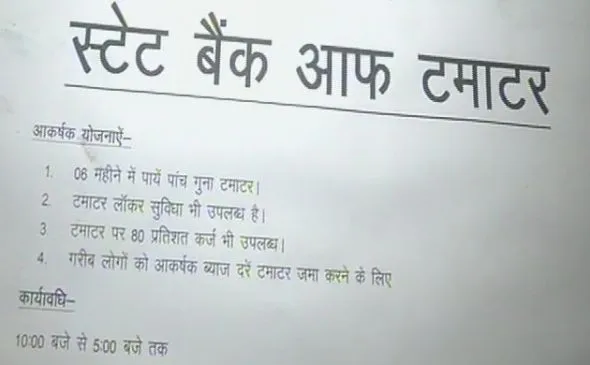 स्टेट बैंक आफ टमाटर
आकर्षक योजनाऐं–
1. 06 महीने में पायें पांच गुना टमाटर।
2. टमाटर लॉकर सुविधा भी उपलब्ध है।
3 टमाटर पर 80 प्रतिशत कर्ज भी उपलब्ध।
4. गरीब लोगों को आकर्षक ब्याज दरें टमाटर जमा करने के लिए
कार्यावधि–
10:00 बजे से 5:00 बजे तक